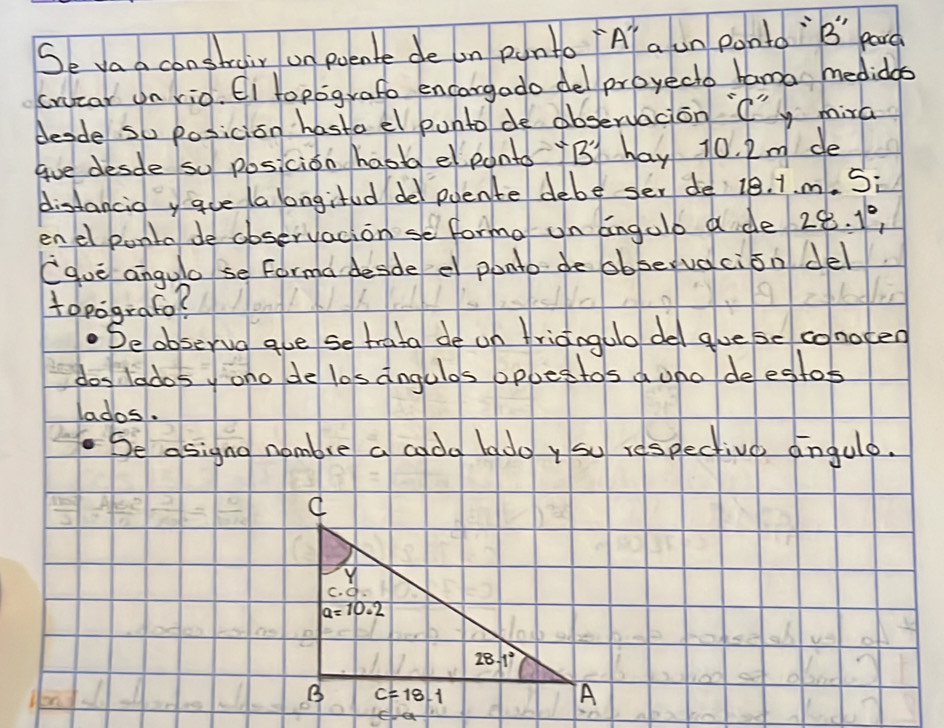 Se va a construir un puente de un punto "A" a un ponto "B" para
crucar un rio. El topógrafo encargado del proyecto toma medidas
desde su posición hasta el punto de observación "C" y mira
que desde su posición hasta el ponto "B" hay 10.2 m de
distancia y que la longitud del puente debe ser de 18.1.m. Si
en el punto de observación se forma un ángulo a de 28.1°,
¿qué angulo se forma desde el ponto de observación del
topógrafo?
• De observa que se trata de un triángulo del que se conocen
dos lados y uno de los ángulos opuestos a uno de estos
lados.
• Se asigna nombre a cada lado y su respectivo ángulo.
C
Y
c.o.
a=10.2
28.1°
B C=18.1 A
c.a